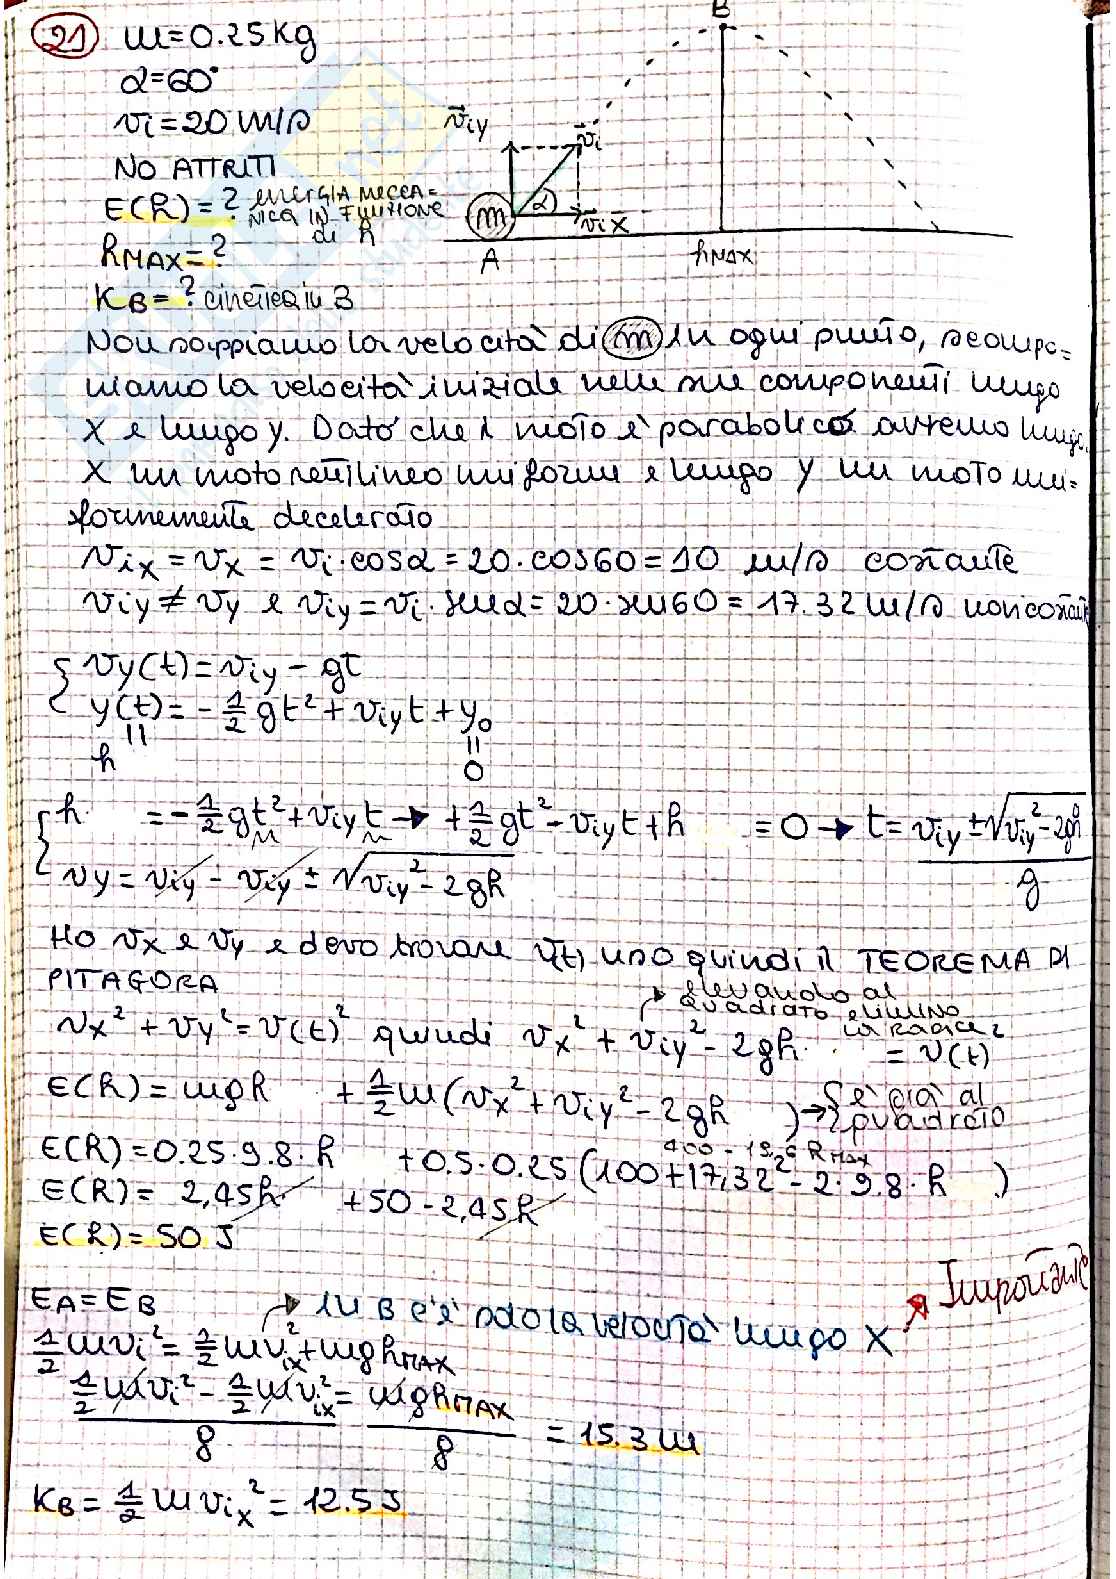 21 m=0.25Kg
α=60°
vi=20 m/s
NO ATTRITI
E(h)=? ENERGIA MECCA=
NICA IN FUNZIONE
di h
hMAX=?
KB=? cinetica in B
B
v⃗iy
v⃗i
α
v⃗ix
m
A
hMAX
Non sappiamo la velocità di m in ogni punto, scompo=
niamo la velocità iniziale nelle sue componenti lungo
X e lungo y. Dato che il moto è parabolico avremo lungo
X un moto rettilineo uniforme e lungo y un moto uni=
formemente decelerato
vix = vx = vi·cosα = 20·cos60 = 10 m/s costante
viy ≠ vy e viy = vi·senα = 20·sen60 = 17.32 m/s non costante
{ vy(t) = viy - gt
y(t) = -1/2 gt² + viyt + y0
h
0
{ h = -1/2 gt² + viyt → +1/2 gt² - viyt + h = 0 → t = viy ± √viy² - 2gh / g
vy = viy - viy ± √viy² - 2gh
Ho vx e vy e devo trovare v(t) uso quindi il TEOREMA DI
PITAGORA
elevando al
quadrato elimino
la radice
vx² + vy² = v(t)² quindi vx² + viy² - 2gh = v(t)²
E(h) = mgh + 1/2 m (vx² + viy² - 2gh) → è già al
quadrato
400 - 19,6 hMAX
E(h) = 0.25·9.8·h + 0.5·0.25 (100 + 17,32² - 2·9.8·h)
E(h) = 2,45h + 50 - 2,45h
E(h) = 50 J
Importante
EA = EB → in B c'è solo la velocità lungo X
1/2 mvi² = 1/2 mvix² + mghMAX
1/2 mvi² - 1/2 mvix² = mghMAX
g g = 15.3 m
KB = 1/2 m vix² = 12.5 J